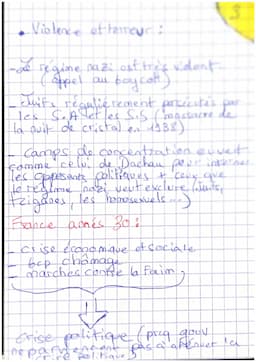 5
• Violence et terreur :
- Le régime nazi est très violent
(appel au boycott)
- Juifs régulièrement persécutés par
les S.A et les S.S (massacre de
la nuit de cristal en 1938)
- Camps de concentration ouvert
comme celui de Dachau pour interner
les opposants politiques + ceux que
le régime nazi veut exclure (Juifs,
tziganes, les homosexuels...)
France années 30 :
- crise économique et sociale
- bcp chômage
- marches contre la faim
crise politique (prcq gouv
ne parviennent pas à atténuer la
crise politique)